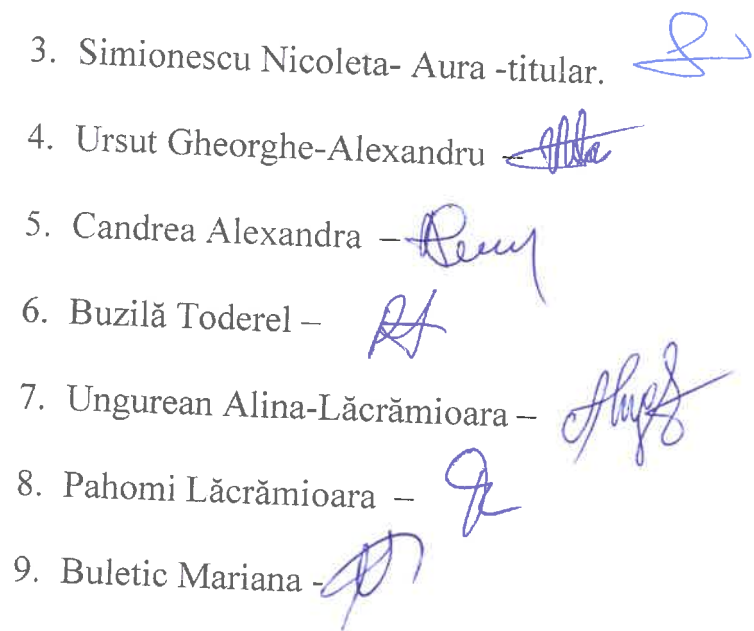 3. Simionescu Nicoleta- Aura -titular.
4. Ursut Gheorghe-Alexandru –
5. Candrea Alexandra –
6. Buzilă Toderel –
7. Ungurean Alina-Lăcrămioara –
8. Pahomi Lăcrămioara –
9. Buletic Mariana -